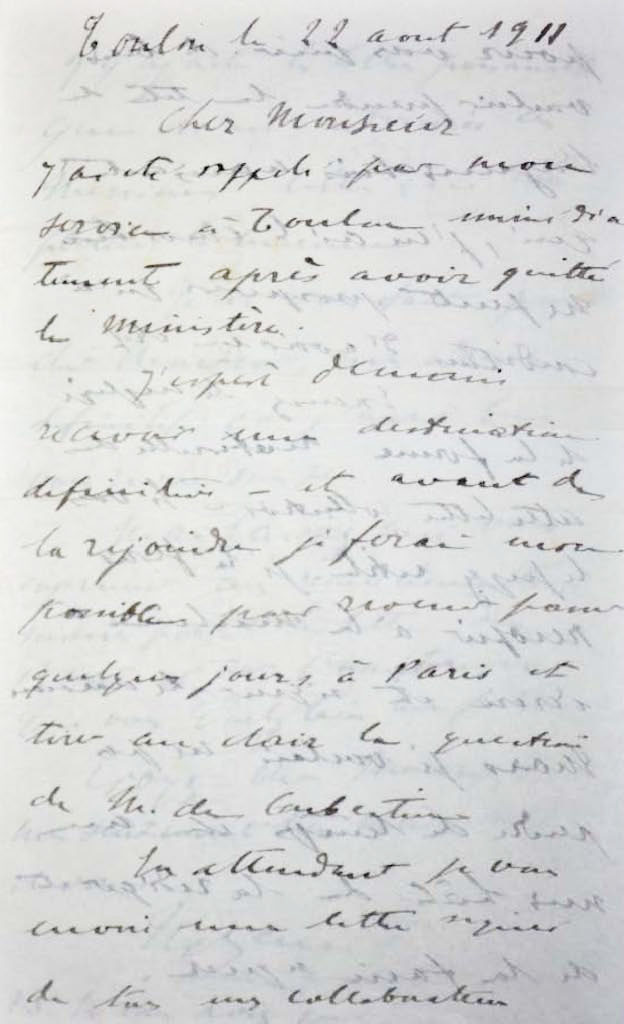 Toulon le 22 aout 1911
Cher Monsieur
J'ai été rappelé par mon
service à Toulon immédia
tement après avoir quitté
le Ministère.
J'espère demain
recevoir une destination
définitive - et avant de
la rejoindre je ferai mon
possible pour revenir passer
quelques jours à Paris et
tirer au clair la question
de M. de
En attendant je vous
envoie une lettre signée
de tous mes collaborateurs